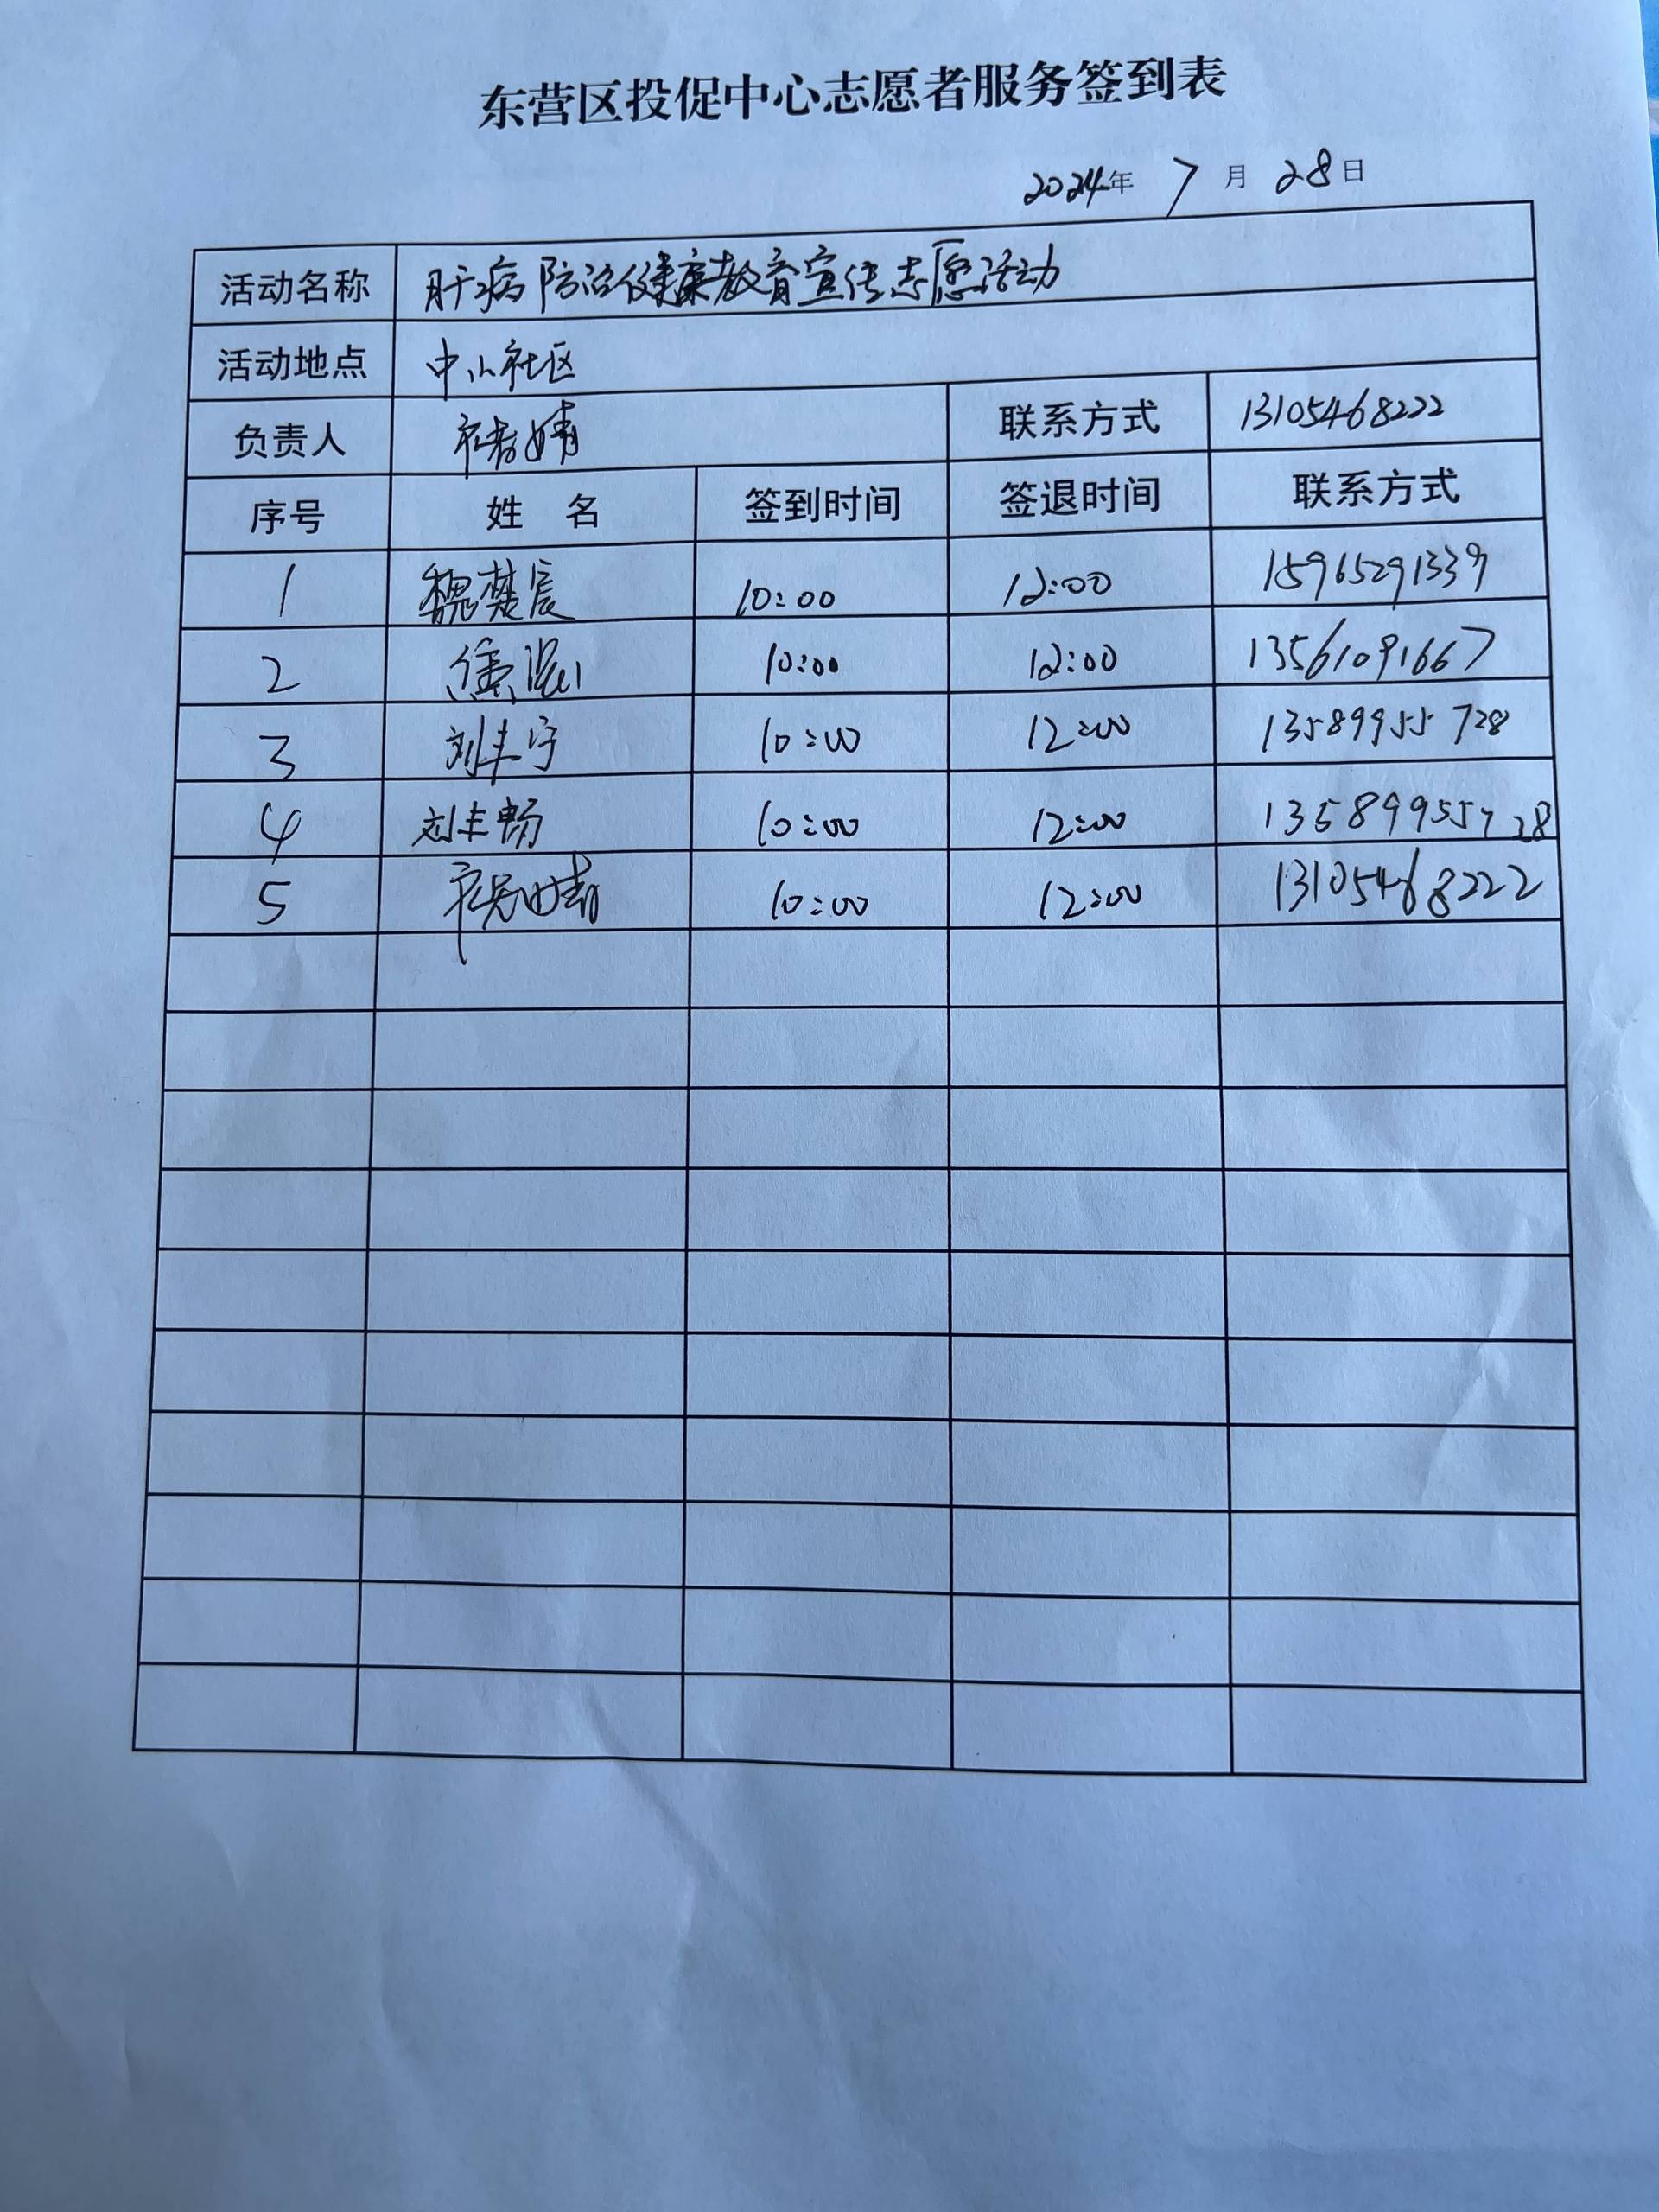 东营区投促中心志愿者服务签到表
2024年 7月 28日
活动名称 肝病防治健康教育宣传志愿活动
活动地点 中山社区
负责人 联系方式 13105468222
序号 姓名 签到时间 签退时间 联系方式
1 魏楚宸 10:00 12:00 15965291339
2 10:00 12:00 13561091667
3 刘丰宁 10:00 12:00 13589955728
4 刘丰畅 10:00 12:00 13589955728
5 10:00 12:00 13105468222